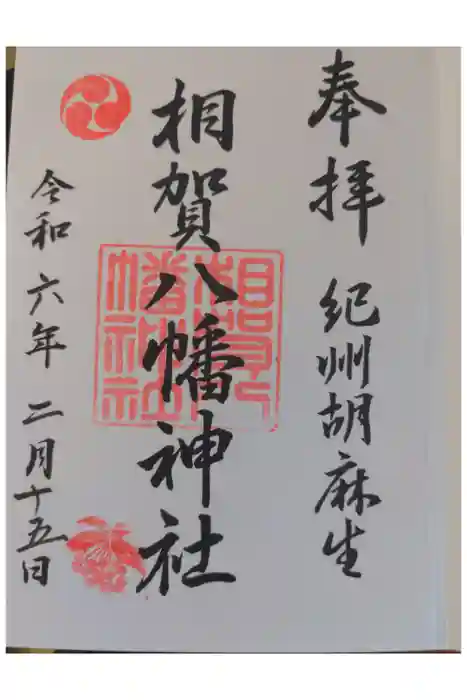 奉拝 紀州胡麻生
相賀八幡神社
令和六年二月十五日
相賀八
幡神社